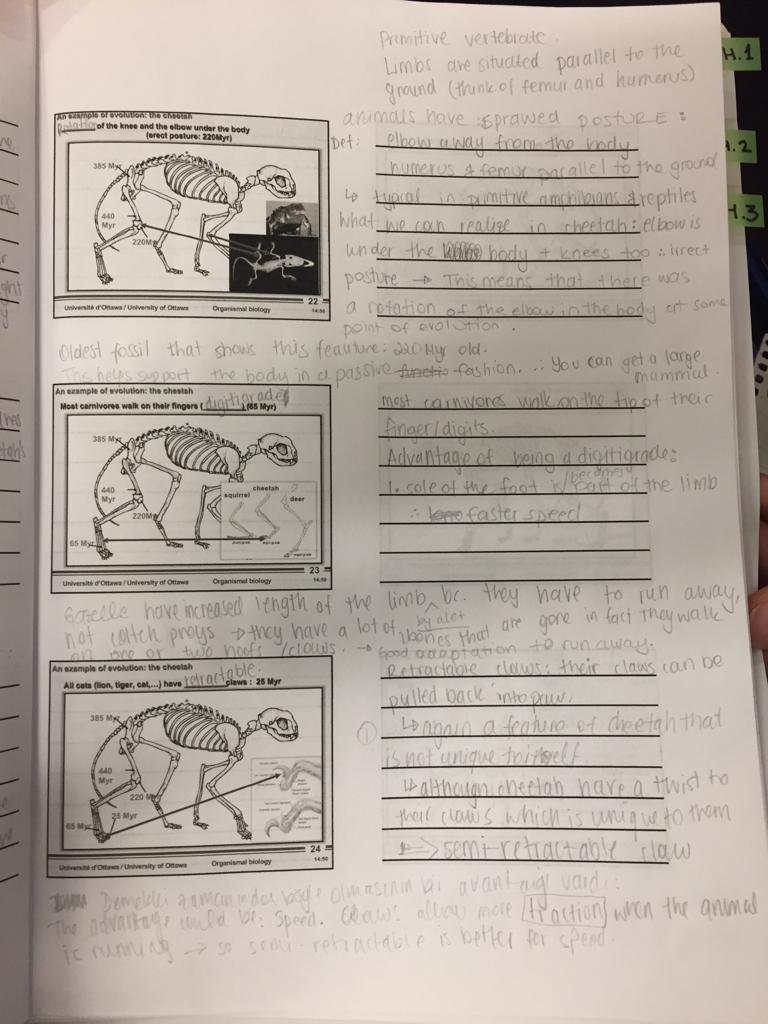 H.1
.2
H.3
Primitive vertebrate.
Limbs are situated parallel to the
ground (think of femur and humerus)
animals have sprawed posture:
Def: elbow away from the body
humerus & femur parallel to the ground
↳ typical in primitive amphibians & reptiles
what we can realize in cheetah: elbow is
under the body + knees too ∴ irrect
posture → This means that there was
a rotation of the elbow in the body at some
point of evolution.
An example of evolution: the cheetah
Rotation of the knee and the elbow under the body
(erect posture: 220Myr)
385 Myr
440
Myr
220M
22
Université d'Ottawa / University of Ottawa Organismal biology 14:50
Oldest fossil that shows this feauture: 220 Myr old.
This helps support the body in a passive fashion. ∴ You can get a large
mammal.
An example of evolution: the cheetah
Most carnivores walk on their fingers (digitigrade) (65 Myr)
385 Myr
440
Myr
220M
65 My
squirrel
cheetah
deer
23
Université d'Ottawa / University of Ottawa Organismal biology 14:50
most carnivores walk on the tip of their
finger/digits.
Advantage of being a digitigrade:
1. sole of the foot is/becomes part of the limb
∴ faster speed
Gazelle have increased length of the limb by alot bc. they have to run away,
not catch preys → they have a lot of bones that are gone in fact they walk
on one or two hoofs/claws. → Good adaptation to run away.
An example of evolution: the cheetah
All cats (lion, tiger, cat,...) have retractable claws : 25 Myr
385 Myr
440
Myr
220 M
65 My
25 Myr
24
Université d'Ottawa / University of Ottawa Organismal biology 14:50
Retractable claws: their claws can be
pulled back into paw.
① ↳ again a feature of cheetah that
is not unique to itself
↳ although cheetah have a twist to
their claws which is unique to them
⇒ semi-retractable claw
Demekki zamanında böyle olmasının bi avantaigi vardı:
The advantage could be: Speed. Claws allow more traction when the animal
is running → so semi-retractable is better for speed.